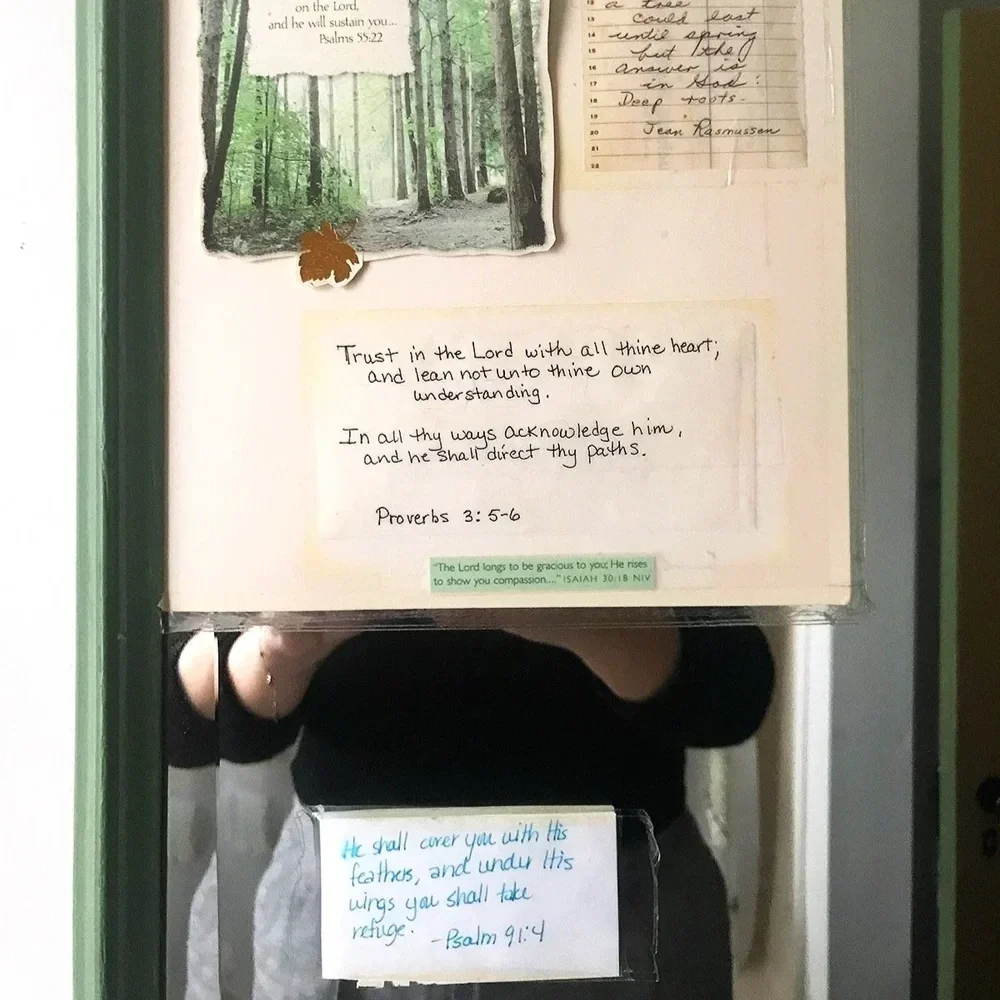 on the Lord,
and he will sustain you...
Psalms 55:22
12 a tree
13 could last
14 until spring
15 but the
16 answer is
17 in God:
18 Deep roots-
19
20 Jean Rasmussen
21
22
Trust in the Lord with all thine heart;
and lean not unto thine own
understanding.
In all thy ways acknowledge him,
and he shall direct thy paths.
Proverbs 3:5-6
"The Lord longs to be gracious to you; He rises
to show you compassion...." ISAIAH 30:18 NIV
He shall cover you with His
feathers, and under His
wings you shall take
refuge.
-Psalm 91:4